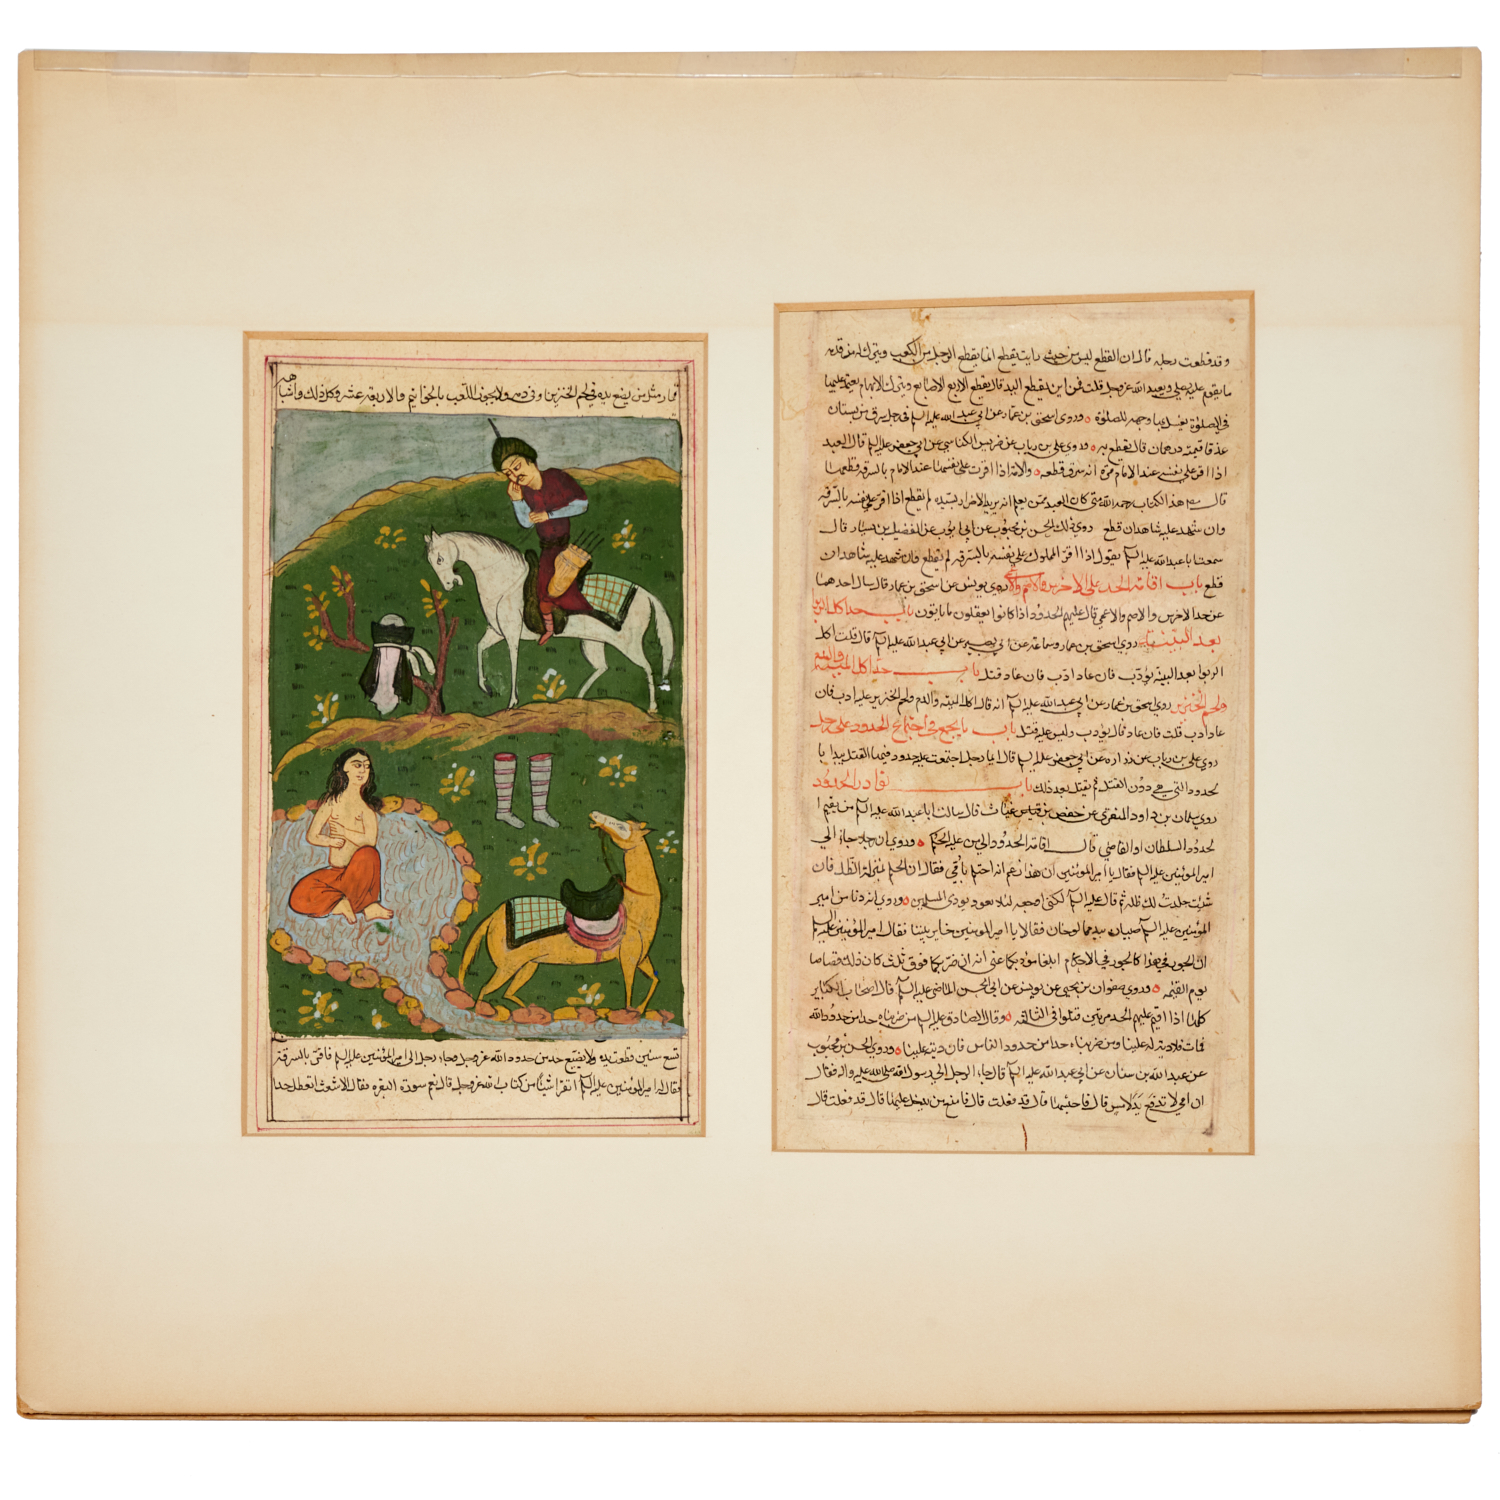 وقد قطعت رجله قال ان القطع ليس من حيث رايت يقطع انما يقطع الرجل من الكعب ويترك له من قدمه
ما يقوم عليه يصلي ويعبد الله عز وجل قلت فمن اين يقطع اليد قال يقطع الاربع الاصابع ويترك الابهام يعتمد عليها
في الصلوة يغسل بها وجهه للصلوة وروي اسحق بن عمار عن ابي عبد الله عليه السلم في رجل سرق من بستان
عذقا قيمته درهمان قال يقطع به وروي علي بن رياب عن ضريس الكناسي عن ابي جعفر عليه السلم قال العبد
اذا اقر على نفسه عند الامام مرة انه سرق قطعه والامة اذا اقرت على نفسها عند الامام بالسرقة قطعها
قال مص هذا الكتاب رحمه الله متى كان العبد ممن يعلم انه يريد الاضرار بسيده لم يقطع اذا اقر على نفسه بالسرقة
وان شهد عليه شاهدان قطع روي ذلك الحسن بن محبوب عن ابي ايوب عن الفضيل بن يسار قال
سمعت ابا عبد الله عليه السلم يقول اذا اقر المملوك على نفسه بالسرقة لم يقطع وان شهد عليه شاهدان
قطع باب اقامة الحد على الاخرس والاصم والاعمى روي يونس عن اسحق بن عمار قال سال احدهما
عن حد الاخرس والاصم والاعمى قال عليهم الحدود اذا كانوا يعقلون ما ياتون باب حد اكل الربوا
بعد البينة روي اسحق بن عمار وسماعة عن ابي بصير عن ابي عبد الله عليه السلم قال قلت اكل
الربوا بعد البينة يؤدب فان عاد ادب فان عاد قتل باب حد اكل الميتة والدم
ولحم الخنزير روي اسحق بن عمار عن ابي عبد الله عليه السلم انه قال اكل الميتة والدم ولحم الخنزير عليه ادب فان
عاد ادب قلت فان عاد قال يؤدب وليس عليه قتل باب ما يجمع في اجتماع الحدود على رجل
روي علي بن رياب عن زرارة عن ابي جعفر عليه السلم قال ايما رجل اجتمعت عليه حدود فيها القتل يبدا با
لحدود التي هي دون القتل ثم يقتل بعد ذلك باب نوادر الحدود
روي سليمان بن داود المنقري عن حفص بن غياث قال سالت ابا عبد الله عليه السلم من يقيم ا
لحدود السلطان او القاضي قال اقامة الحدود الى من عليه الحكم وروي ان رجلا جاء الى
امير المومنين عليه السلم فقال يا امير المومنين ان هذا زعم انه احتلم بامي فقال ان الحلم بمنزلة الظل فان
شئت جلدت لك ظله ثم قال عليه السلم لكني اضربه لئلا يعود يوذي المسلمين وروي انه دنا من امير
المؤمنين عليه السلم صبيان بيدهما لوحان فقالا يا امير المومنين خاير بيننا فقال امير المؤمنين عليه السلم
ان الجور في هذا كالجور في الاحكام ابلغا مؤدبكما عني انه ان ضربكما فوق ثلث كان ذلك قصاصا
يوم القيمة وروي صفوان بن يحيى عن يونس عن ابي الحسن الماضي عليه السلم قال اصحاب الكباير
كلها اذا اقيم عليهم الحد مرتين قتلوا في الثالثة وقال الصادق عليه السلم من ضربناه حدا من حدود الله
فمات فلا دية له علينا ومن ضربناه حدا من حدود الناس فان ديته علينا وروي الحسن بن محبوب
عن عبد الله بن سنان عن ابي عبد الله عليه السلم قال جاء الرجل الى رسول الله صلى الله عليه واله فقال
ان امي لا تدفع يد لامس قال فاحبسها قال قد فعلت قال فامنع من يدخل عليها قال قد فعلت قال
قمار مثل من يضع يده في لحم الخنزير او في دمه ولا يجوز اللعب بالخواتيم والاربعة عشر وكل ذلك واشباهه
تسع سنين قطعت يده ولا يضيع حد من حدود الله عز وجل وجاء رجل الى امير المؤمنين عليه السلم فاقر بالسرقة
فقال له امير المؤمنين عليه السلم اتقرا شيئا من كتاب الله عز وجل قال نعم سورة البقرة فقال الاشعث اتعطل حدا